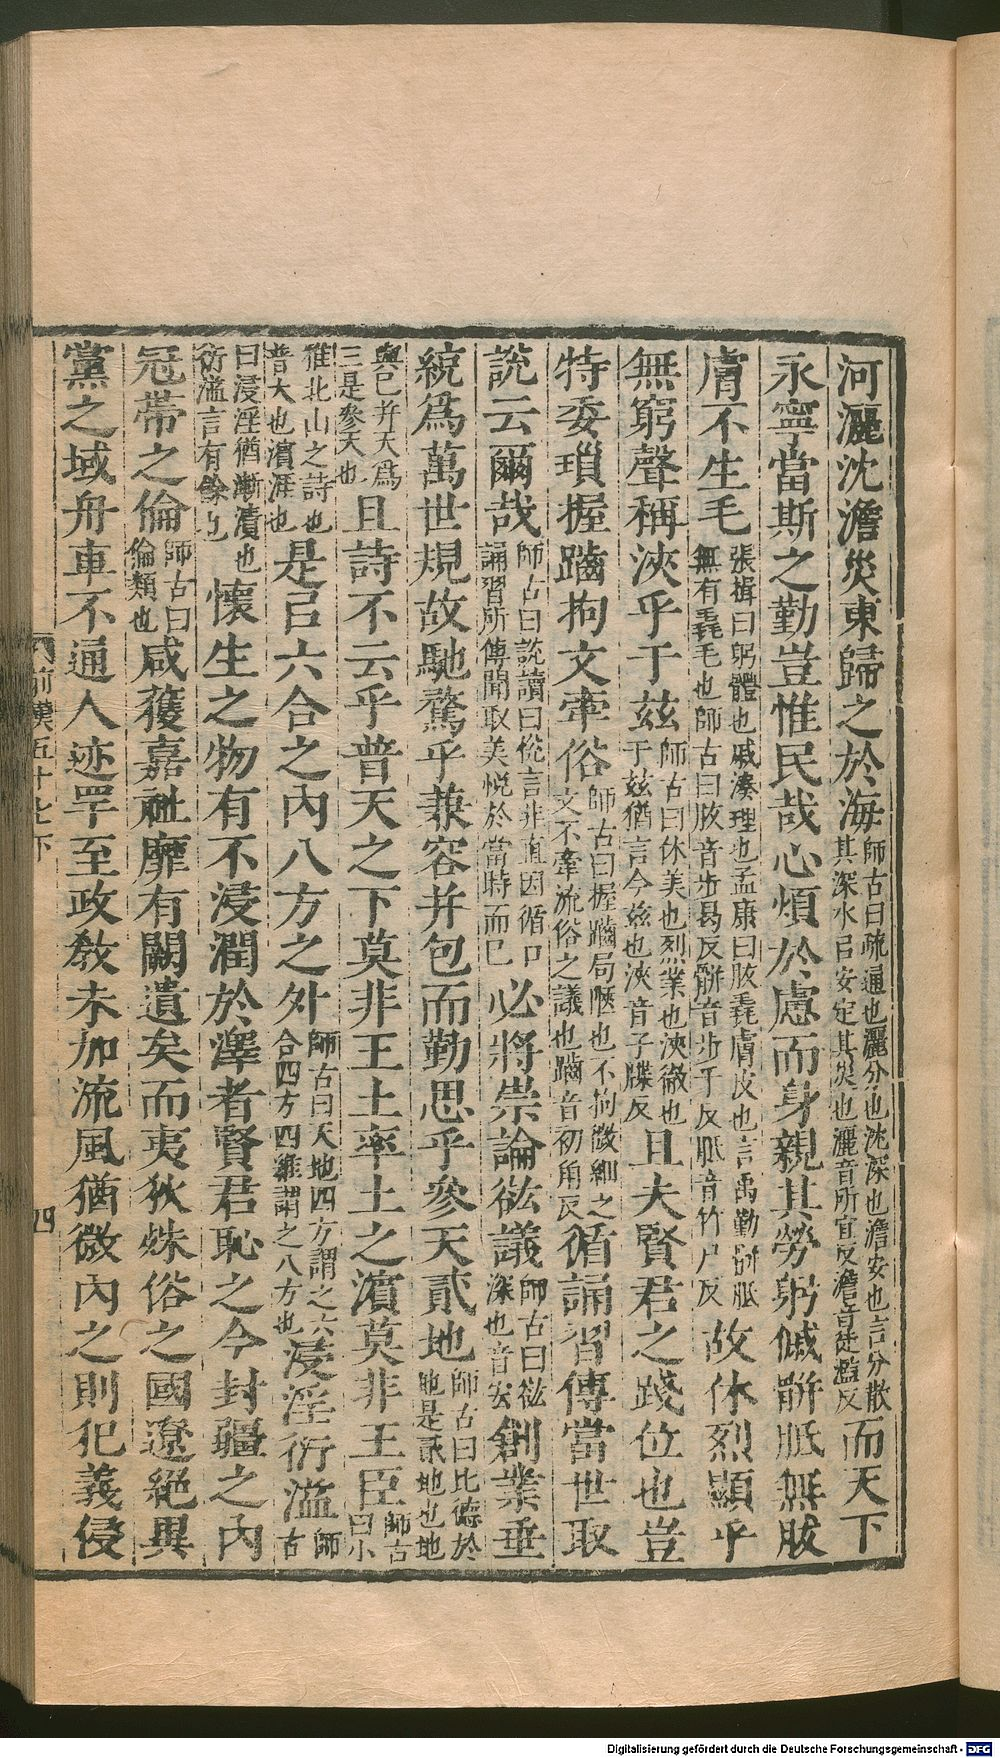 河灑沈澹災東歸之於海師古曰疏通也灑分也沈深也澹安也言分散其深水㠯安定其災也灑音所宜反澹音徒濫反而天下
永寧當斯之勤豈惟民哉心煩於慮而身親其勞躬傶骿胝無胈
膚不生毛張揖曰躬體也戚湊理也孟康曰胈毳膚皮也言禹勤骿胝無有毳毛也師古曰胈音步曷反骿音步千反胝音竹尸反故休烈顯乎
無窮聲稱浹乎于兹師古曰休美也烈業也浹徹也于兹猶言今兹也浹音子牒反且夫賢君之踐位也豈
特委瑣握齱拘文牽俗師古曰握齱局陿也不拘微細之文不牽流俗之議也齱音初角反循誦習傳當世取
說云爾哉師古曰說讀曰悅言非直因循口誦習所傳聞取美悅於當時而已必將崇論谹議師古曰谹深也音宏創業垂
統爲萬世規故馳騖乎兼容并包而勤思乎參天貳地師古曰比德於地是貳地也地
與己并天爲三是參天也且詩不云乎普天之下莫非王土率土之濱莫非王臣師古曰小
雅北山之詩也普大也濱涯也是㠯六合之內八方之外師古曰天地四方謂之六合四方四維謂之八方也浸淫衍溢師古
曰浸淫猶漸漬也衍溢言有餘也懷生之物有不浸潤於澤者賢君恥之今封疆之內
冠帶之倫師古曰倫類也咸獲嘉祉靡有闕遺矣而夷狄殊俗之國遼絕異
黨之域舟車不通人迹罕至政教未加流風猶微內之則犯義侵
前漢五十七下
四
Digitalisierung gefördert durch die Deutsche Forschungsgemeinschaft - DFG